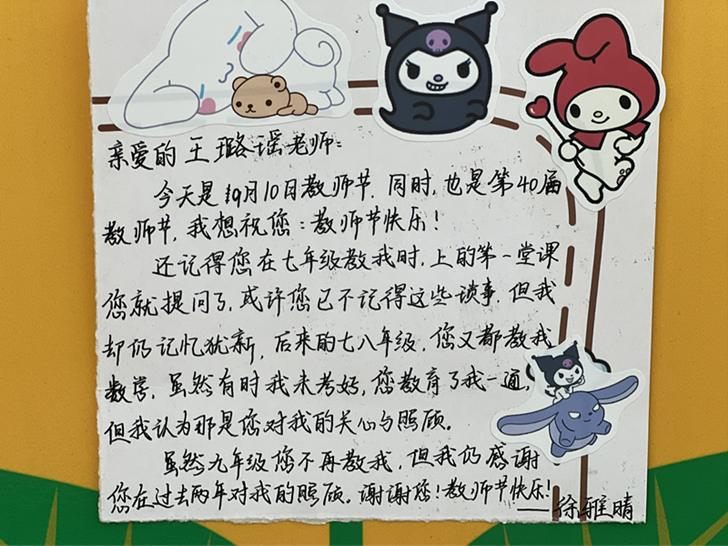 亲爱的王璐瑶老师:
今天是9月10日教师节.同时,也是第40届
教师节,我想祝您:教师节快乐!
还记得您在七年级教我时,上的第一堂课
您就提问了,或许您已不记得这些琐事.但我
却仍记忆犹新,后来的七八年级,您又都教我
数学,虽然有时我未考好,您教育了我一通,
但我认为那是您对我的关心与照顾。
虽然九年级您不再教我,但我仍感谢
您在过去两年对我的照顾.谢谢您!教师节快乐!
——徐雅晴